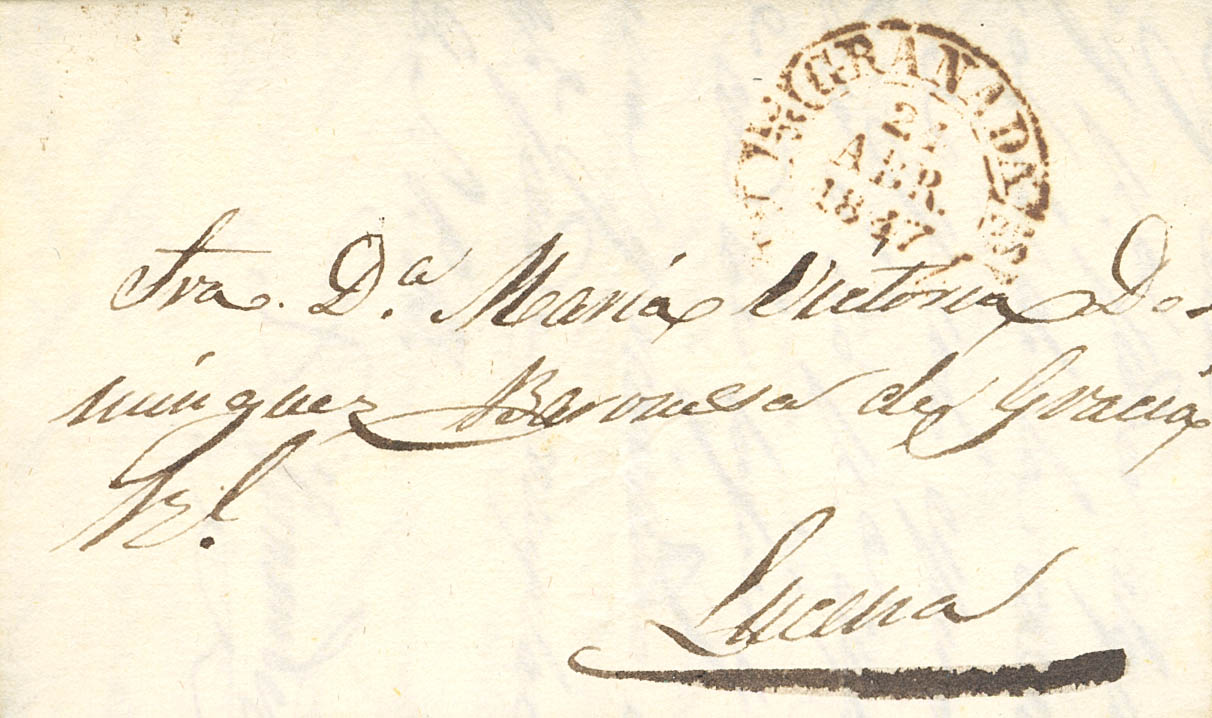 GRANADA
ABR.
1847
Sra. D.ª María Victoria Do-
minguez Baronesa de Gracia
Rl.
Lucena